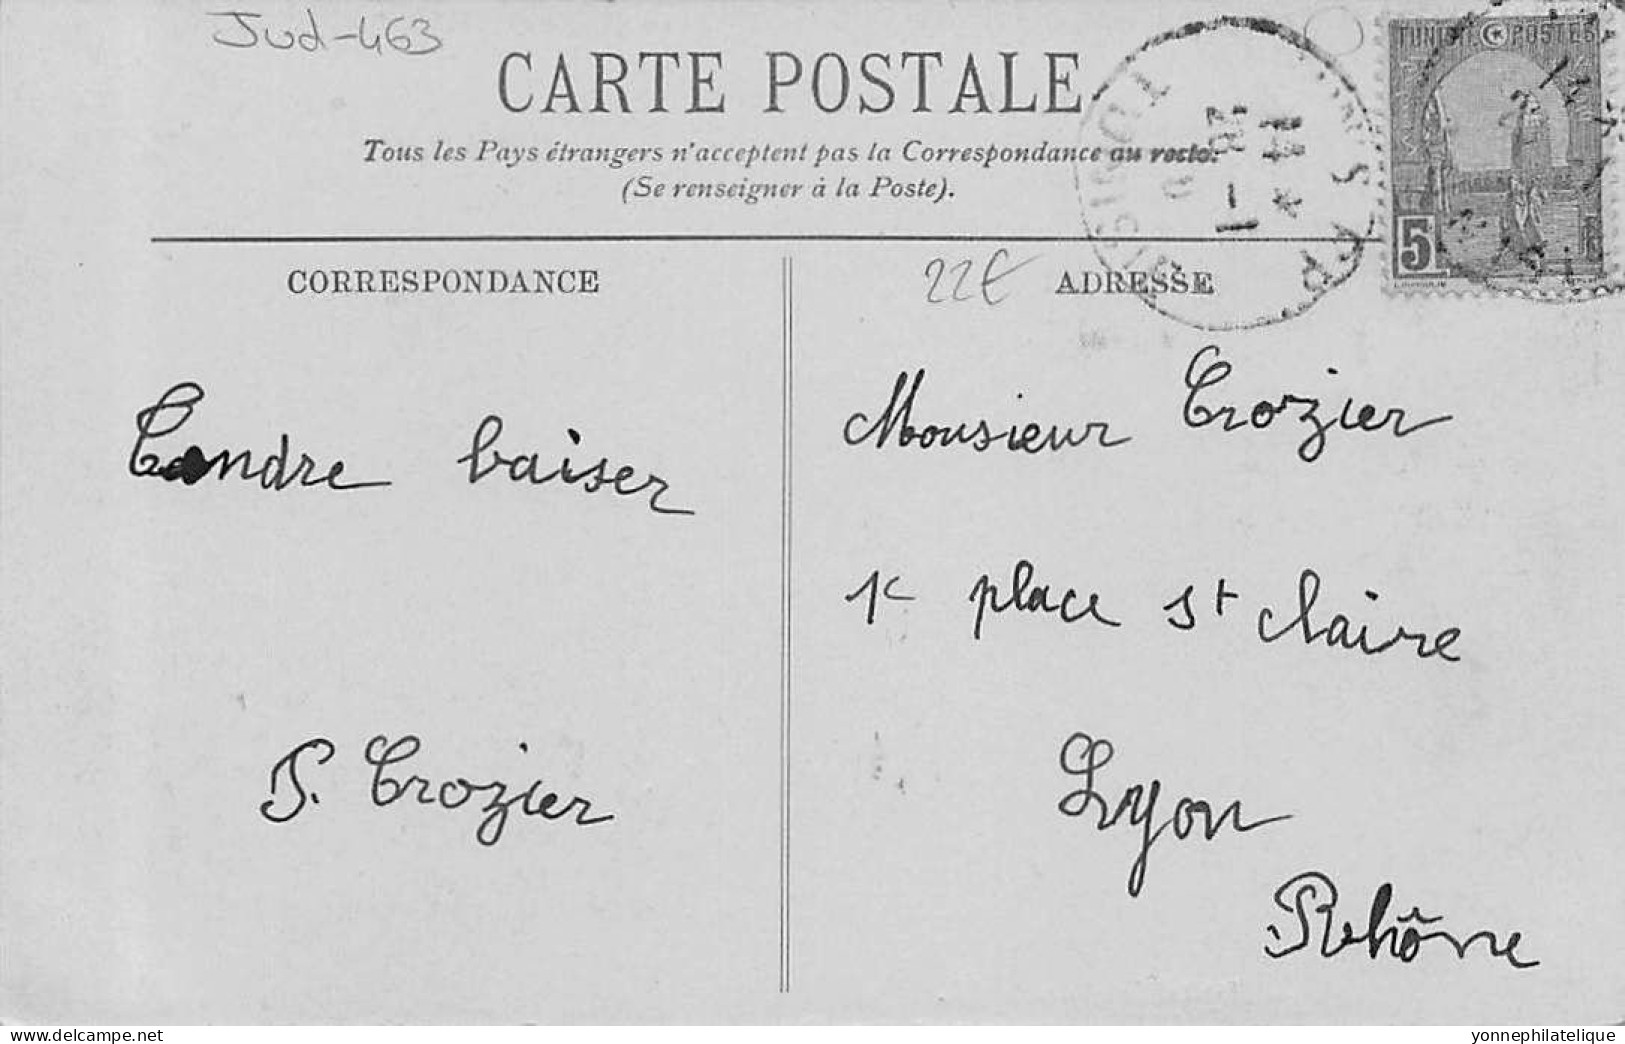 Jud-463
CARTE POSTALE
Tous les Pays étrangers n'acceptent pas la Correspondance au recto.
(Se renseigner à la Poste).
TUNISIE POSTES
5
CORRESPONDANCE
22€
ADRESSE
Tendre baiser
Monsieur Crozier
place St Claire
P. Crozier
Lyon
Rhône
delcampe.net
yonnephilatelique